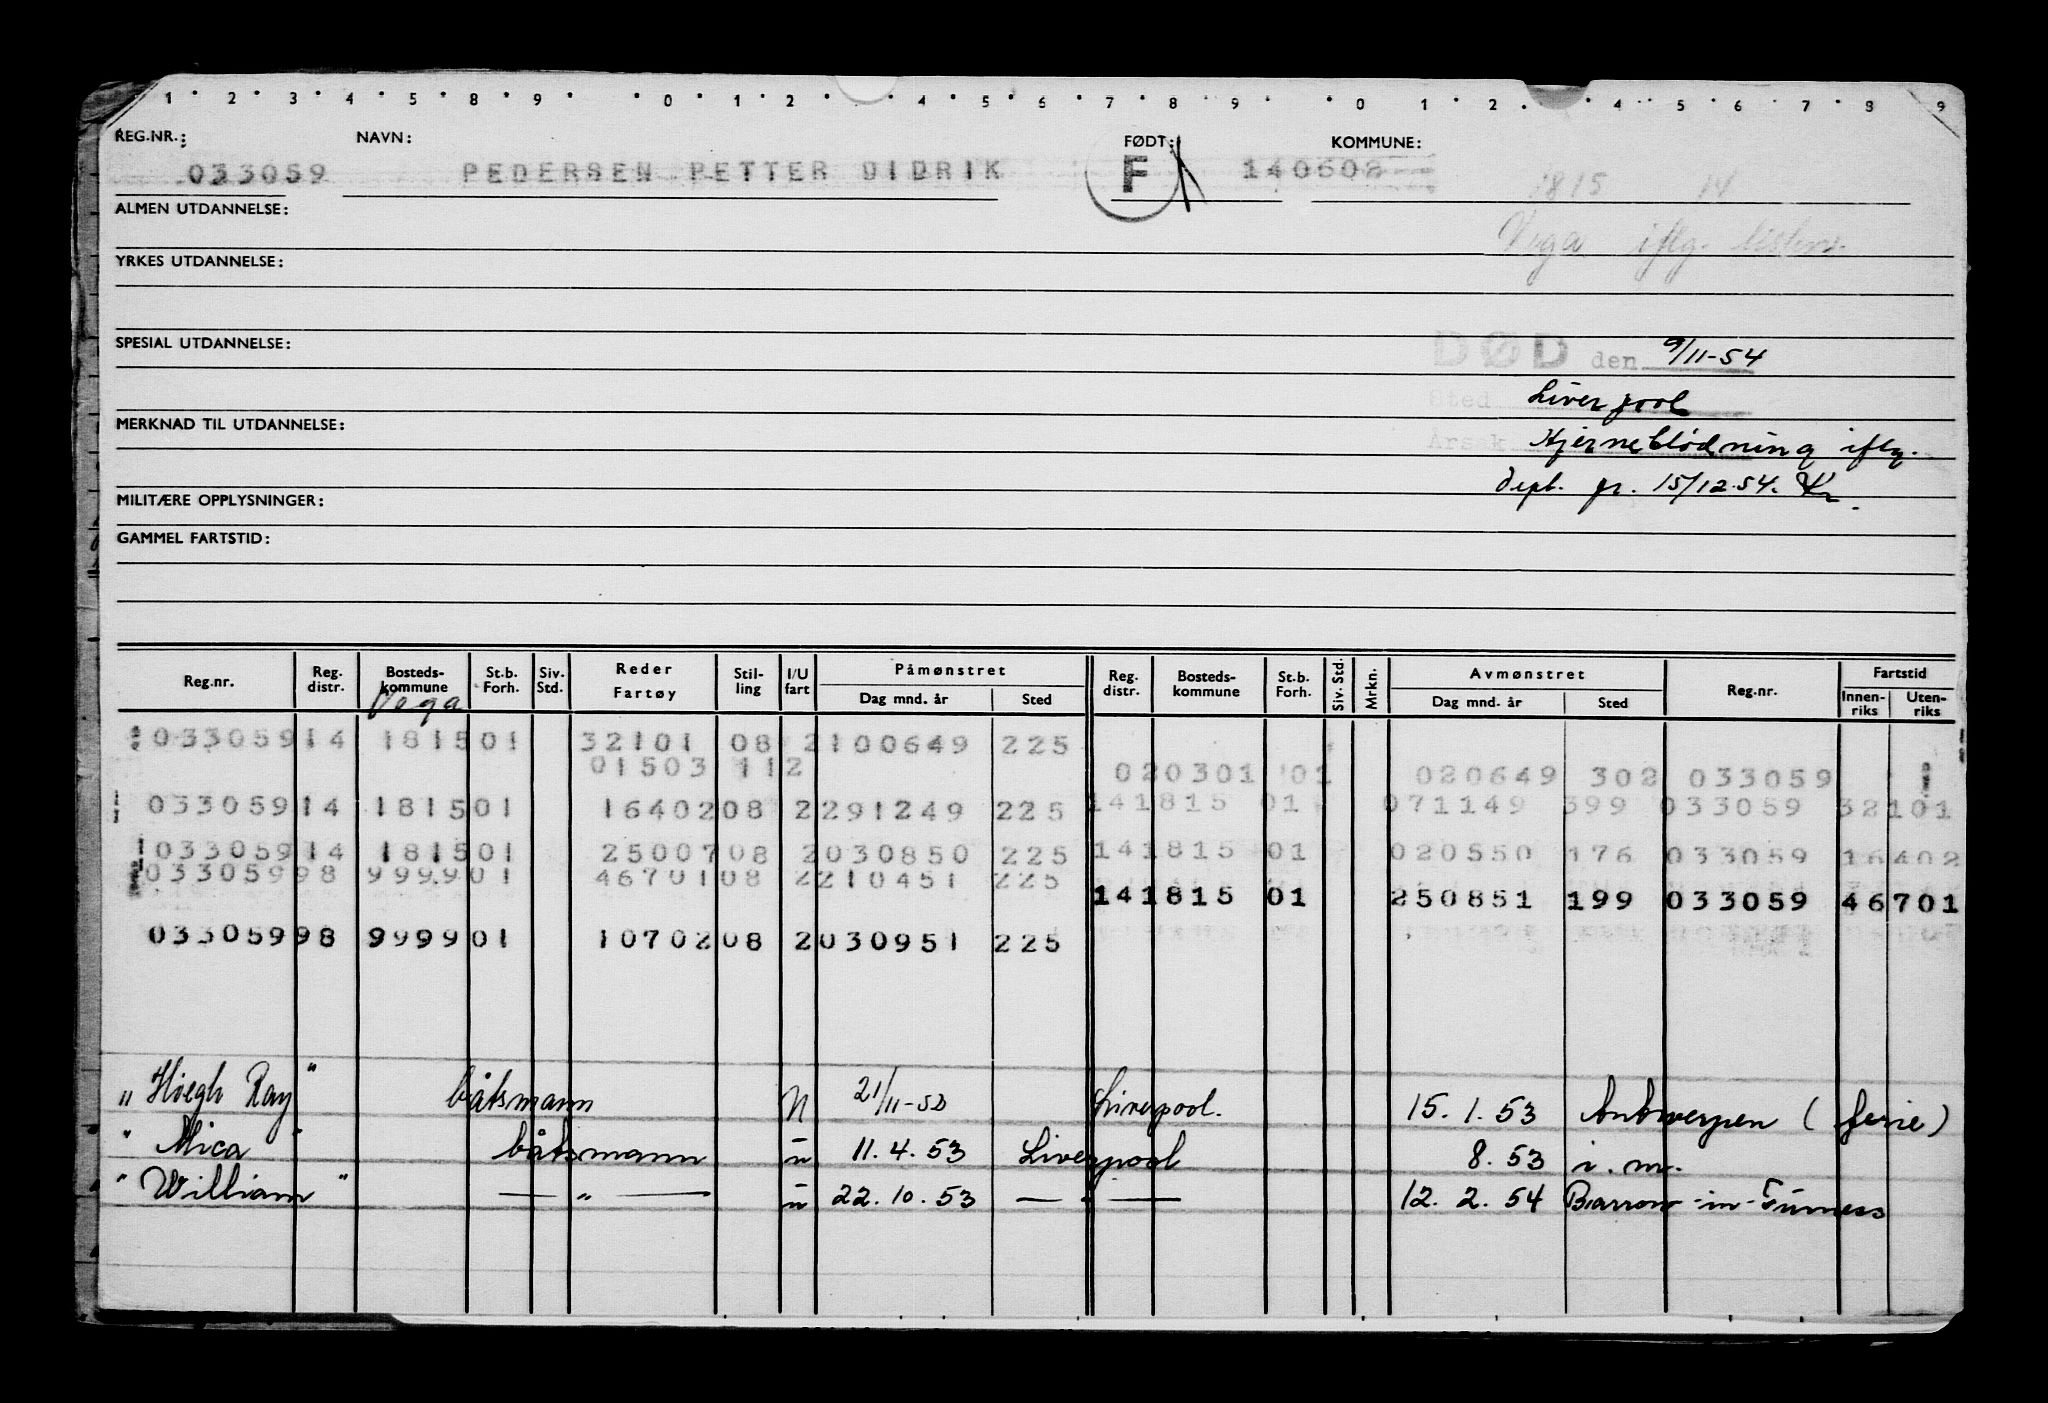 1 2 3 4 5 8 9 0 1 2 4 5 6 7 8 9 0 1 2 4 5 6 7 8 9
REG.NR.: NAVN: FØDT: KOMMUNE:
033059 PEDERSEN PETTER DIDRIK F 140602 1815 14
ALMEN UTDANNELSE: Vega iflg. listen.
YRKES UTDANNELSE:
SPESIAL UTDANNELSE: DØD den 9/11-54
Sted Liverpool
MERKNAD TIL UTDANNELSE: Årsak Hjerneblödning iflg.
MILITÆRE OPPLYSNINGER: dept. gr. 15/12.54.
GAMMEL FARTSTID:
Reg.nr. Reg. distr. Bosteds-kommune St.b. Forh. Siv. Std. Reder Fartøy Stil-ling I/U fart Påmønstret Dag mnd. år Sted Reg. distr. Bosteds-kommune St.b. Forh. Siv. Std. Mrkn. Avmønstret Dag mnd. år Sted Reg.nr. Fartstid Innen-riks Uten-riks
Vega
033059 14 1815 01 32101 08 2 100649 225
01503 112 020301 01 020649 302 033059
033059 14 1815 01 16402 08 2 291249 225 141815 01 071149 399 033059 32101
033059 14 1815 01 25007 08 2 030850 225 141815 01 020550 176 033059 16402
033059 98 9999 01 46701 08 2 210451 225
141815 01 250851 199 033059 46701
033059 98 9999 01 10702 08 2 030951 225
"Höegh Ray" båtsmann U 21/11-52 Liverpool. 15.1.53 Antwerpen (ferie)
"Mica" båtsmann u 11.4.53 Liverpool 8.53 i.m.
"William" — " — u 22.10.53 — " — 12.2.54 Barrow-in-Furness